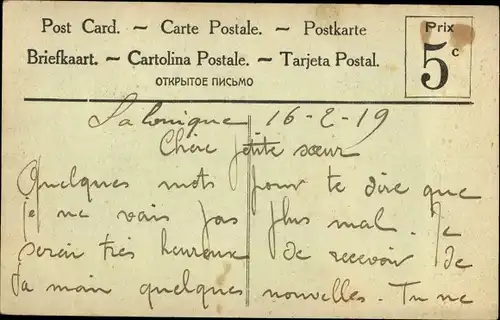 Post Card. ~ Carte Postale. ~ Postkarte
Briefkaart. ~ Cartolina Postale. ~ Tarjeta Postal.
ОТКРЫТОЕ ПИСЬМО
Prix
5 c
Salonique 16-2-19
Chère petite sœur
Quelques mots pour te dire que
je ne vais pas plus mal. Je
serai très heureux de recevoir de
ta main quelques nouvelles. Tu ne